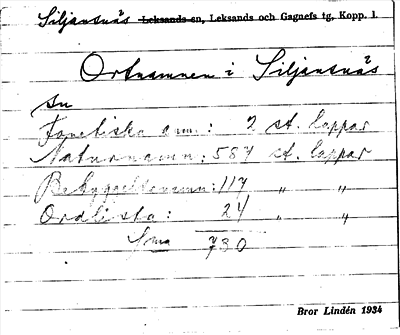 Siljansnäs Leksands sn, Leksands och Gagnefs tg, Kopp. l.
Ortnamnen i Siljansnäs
sn
Fonetiska anm.: 2 st. lappar
Naturnamn: 587 st. lappar
Bebyggelsenamn: 117 " "
Ordlista: 24 " "
Sma 730
Bror Lindén 1934